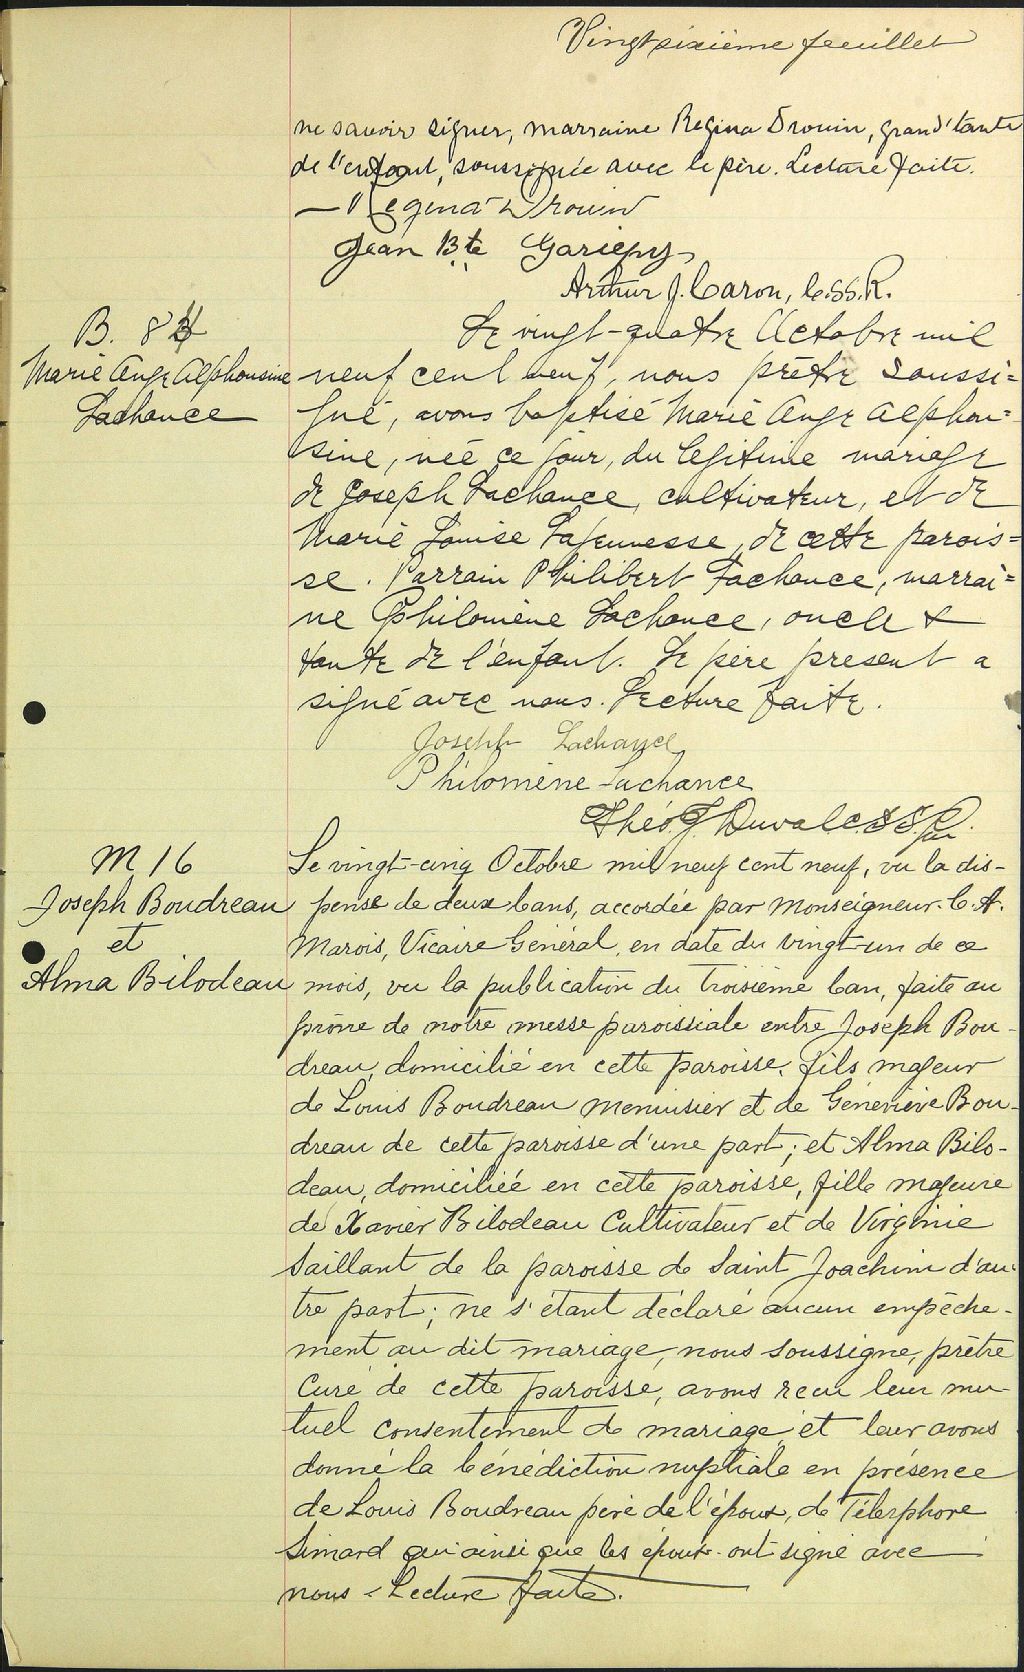 Vingt sixième feuillet
ne savoir signer, marraine Regina Drouin, grand'tante
de l'enfant, soussignée avec le père. Lecture faite.
— Regina Drouin
Jean Bte Gariépy
Arthur J. Caron, C.SS.R.
B. 84
Marie Ange Alphonsine
Lachance
Le vingt-quatre Octobre mil
neuf cent neuf, nous prêtre soussi=
gné, avons baptisé Marie Ange Alphon=
sine, née ce jour, du légitime mariage
de Joseph Lachance, cultivateur, et de
Marie Louise Lajeunesse, de cette parois=
se. Parrain Philibert Lachance, marrai=
ne Philomène Lachance, oncle &
tante de l'enfant. Le père présent a
signé avec nous. Lecture faite.
Joseph Lachance
Philomène Lachance
Théo J. Duval CSS.R.
M 16
Joseph Boudreau
et
Alma Bilodeau
Le vingt-cinq Octobre mil neuf cent neuf, vu la dis-
pense de deux bans, accordée par Monseigneur C. A.
Marois, Vicaire Général, en date du vingt-un de ce
mois, vu la publication du troisième ban, faite au
prône de notre messe paroissiale entre Joseph Bou-
dreau, domicilié en cette paroisse, fils majeur
de Louis Boudreau menuisier et de Geneviève Bou-
dreau de cette paroisse d'une part; et Alma Bilo-
deau, domiciliée en cette paroisse, fille majeure
de Xavier Bilodeau Cultivateur et de Virginie
Saillant de la paroisse de Saint Joachim d'au-
tre part; ne s'étant déclaré aucun empêche-
ment au dit mariage, nous soussigné, prêtre
Curé de cette paroisse, avons reçu leur mu-
tuel consentement de mariage et leur avons
donné la bénédiction nuptiale en présence
de Louis Boudreau père de l'époux, de Télesphore
Simard qui ainsi que les époux ont signé avec
nous. Lecture faite.